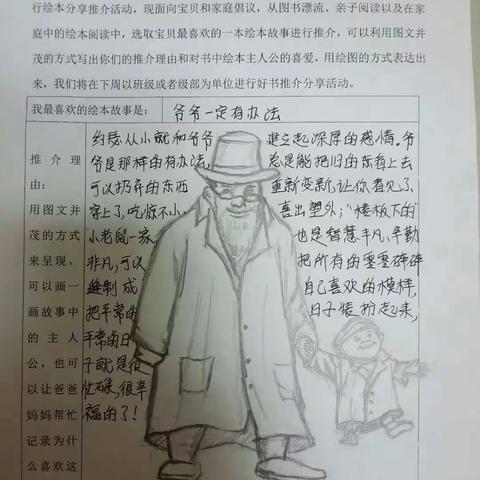 行绘本分享推介活动，现面向宝贝和家庭倡议，从图书漂流、亲子阅读以及在家
庭中的绘本阅读中，选取宝贝最喜欢的一本绘本故事进行推介，可以利用图文并
茂的方式写出你们的推介理由和对书中绘本主人公的喜爱，用绘图的方式表达出
来，我们将在下周以班级或者级部为单位进行好书推介分享活动。
我最喜欢的绘本故事是： 爷爷一定有办法
推介理
由：
用图文并
茂的方式
来呈现，
可以画一
画故事中
的主人
公，也可
以让爸爸
妈妈帮忙
记录为什
么喜欢这
约瑟从小就和爷爷 建立起深厚的感情。爷
爷是那样的有办法， 总是能把旧的东西上去
可以扔弃的东西 重新变新，让你看见了、
穿上了，吃惊不小， 喜出望外；“楼板下的”
小老鼠一家， 也是智慧非凡、辛勤
非凡，可以 把所有的零零碎碎
缝制成 自己喜欢的模样，
把平常的 日子装扮起来，
平常的日
子就是很
忙碌，很幸
福的了！